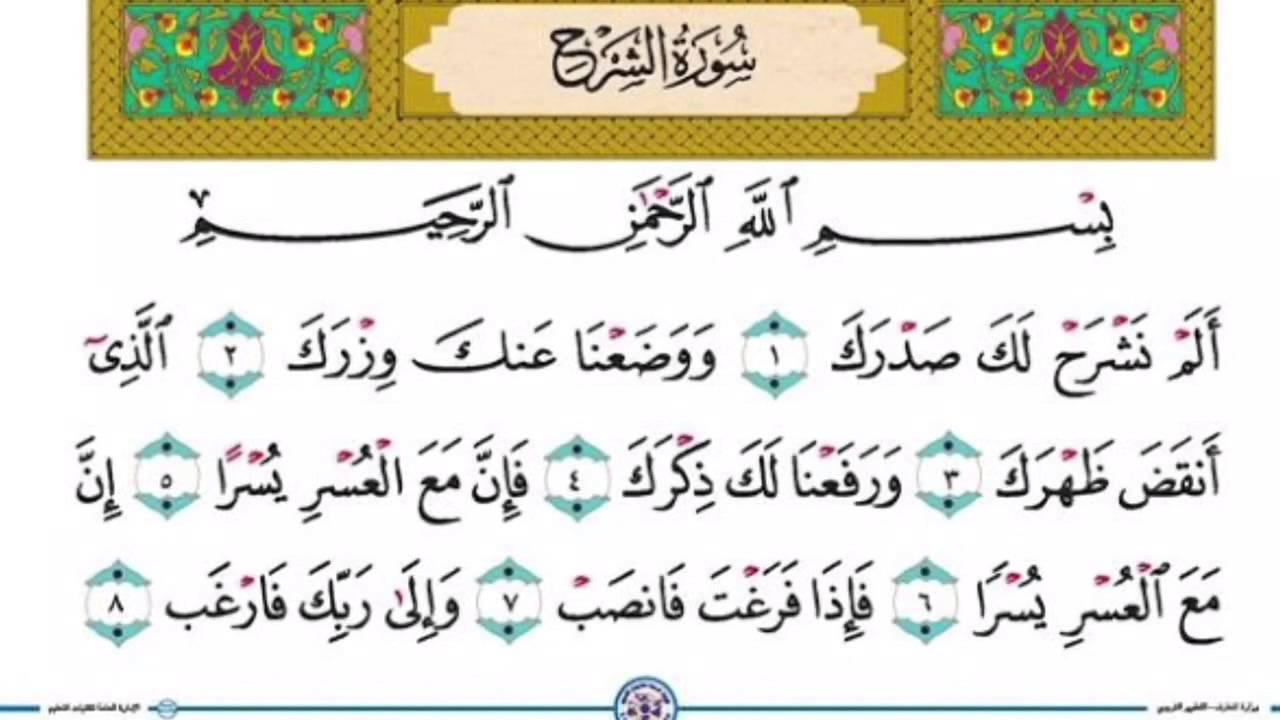 سُورَةُ الشَّرْحِ
بِسْمِ ٱللَّهِ ٱلرَّحْمَٰنِ ٱلرَّحِيمِ
أَلَمْ نَشْرَحْ لَكَ صَدْرَكَ ١ وَوَضَعْنَا عَنكَ وِزْرَكَ ٢ ٱلَّذِىٓ
أَنقَضَ ظَهْرَكَ ٣ وَرَفَعْنَا لَكَ ذِكْرَكَ ٤ فَإِنَّ مَعَ الْعُسْرِ يُسْرًا ٥ إِنَّ
مَعَ ٱلْعُسْرِ يُسْرًا ٦ فَإِذَا فَرَغْتَ فَانصَبْ ٧ وَإِلَىٰ رَبِّكَ فَارْغَب ٨